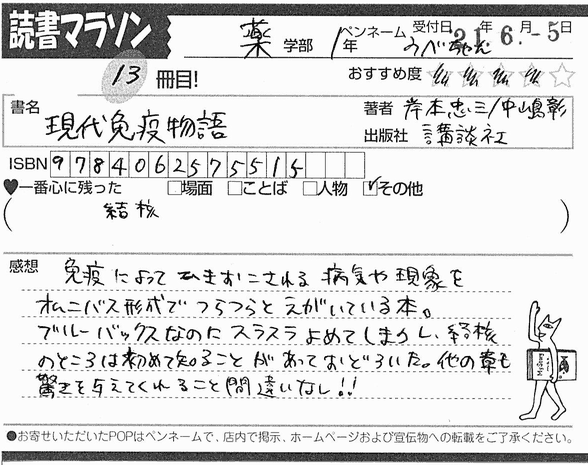 読書マラソン
薬 学部 1年 ペンネーム うべちゃん 受付日 21年6月-5日
13 冊目! おすすめ度 ☆☆☆☆☆
書名 現代免疫物語 著者 岸本忠三/中嶋彰
出版社 講談社
ISBN 9784062575515
♥一番心に残った □場面 □ことば □人物 ☑その他
( 結核 )
感想 免疫によってひきおこされる病気や現象を
オムニバス形式でつらつらとえがいている本。
ブルーバックスなのにスラスラよめてしまうし、結核
のところは初めて知ることがあっておどろいた。他の章も
驚きを与えてくれること間違いなし!!
●お寄せいただいたPOPはペンネームで、店内で掲示、ホームページおよび宣伝物への転載をご了承ください。